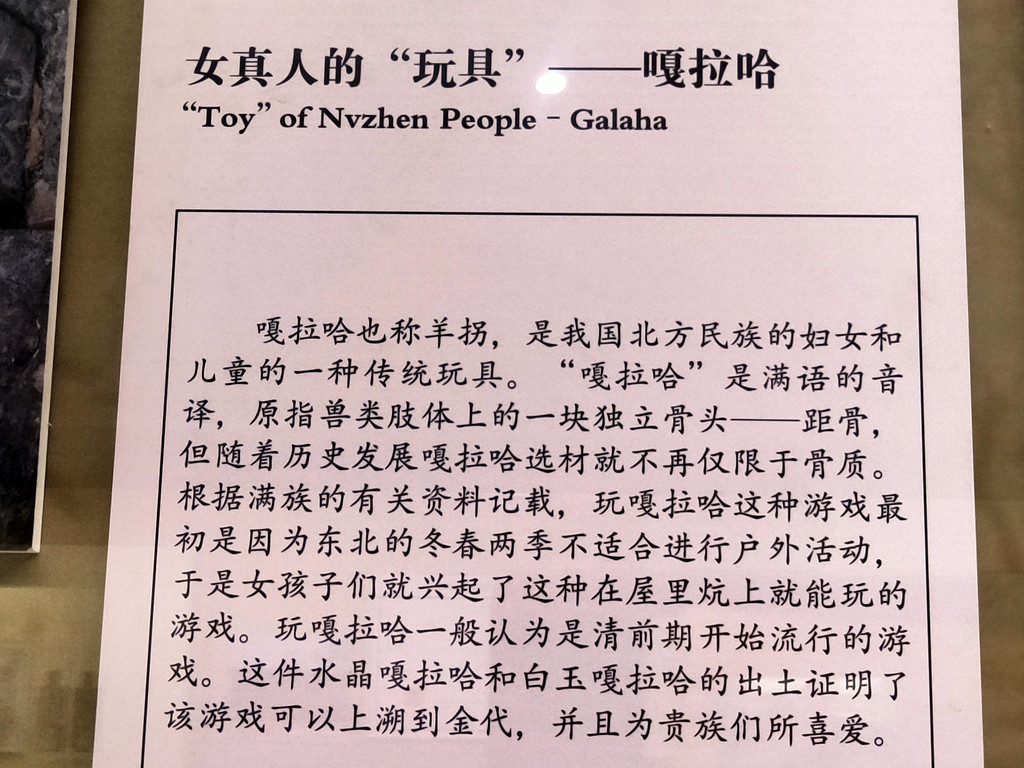 女真人的“玩具”——嘎拉哈
“Toy” of Nvzhen People - Galaha
嘎拉哈也称羊拐，是我国北方民族的妇女和
儿童的一种传统玩具。“嘎拉哈”是满语的音
译，原指兽类肢体上的一块独立骨头——距骨，
但随着历史发展嘎拉哈选材就不再仅限于骨质。
根据满族的有关资料记载，玩嘎拉哈这种游戏最
初是因为东北的冬春两季不适合进行户外活动，
于是女孩子们就兴起了这种在屋里炕上就能玩的
游戏。玩嘎拉哈一般认为是清前期开始流行的游
戏。这件水晶嘎拉哈和白玉嘎拉哈的出土证明了
该游戏可以上溯到金代，并且为贵族们所喜爱。